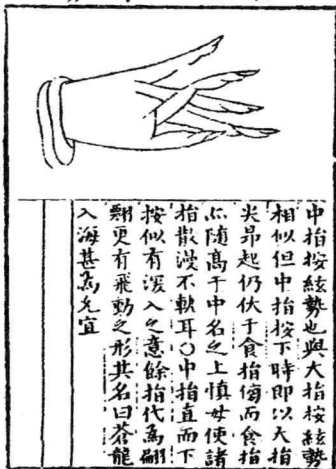 中指按絃勢也與大指按絃勢
相似但中指按下時即以大指
尖昂起仍伏于食指傍而食指
亦隨高于中名之上慎毋使諸
指散漫不軟耳〇中指直而下
按似有深入之意餘指代爲翩
翾更有飛動之形其名曰蒼龍
入海甚爲允宜